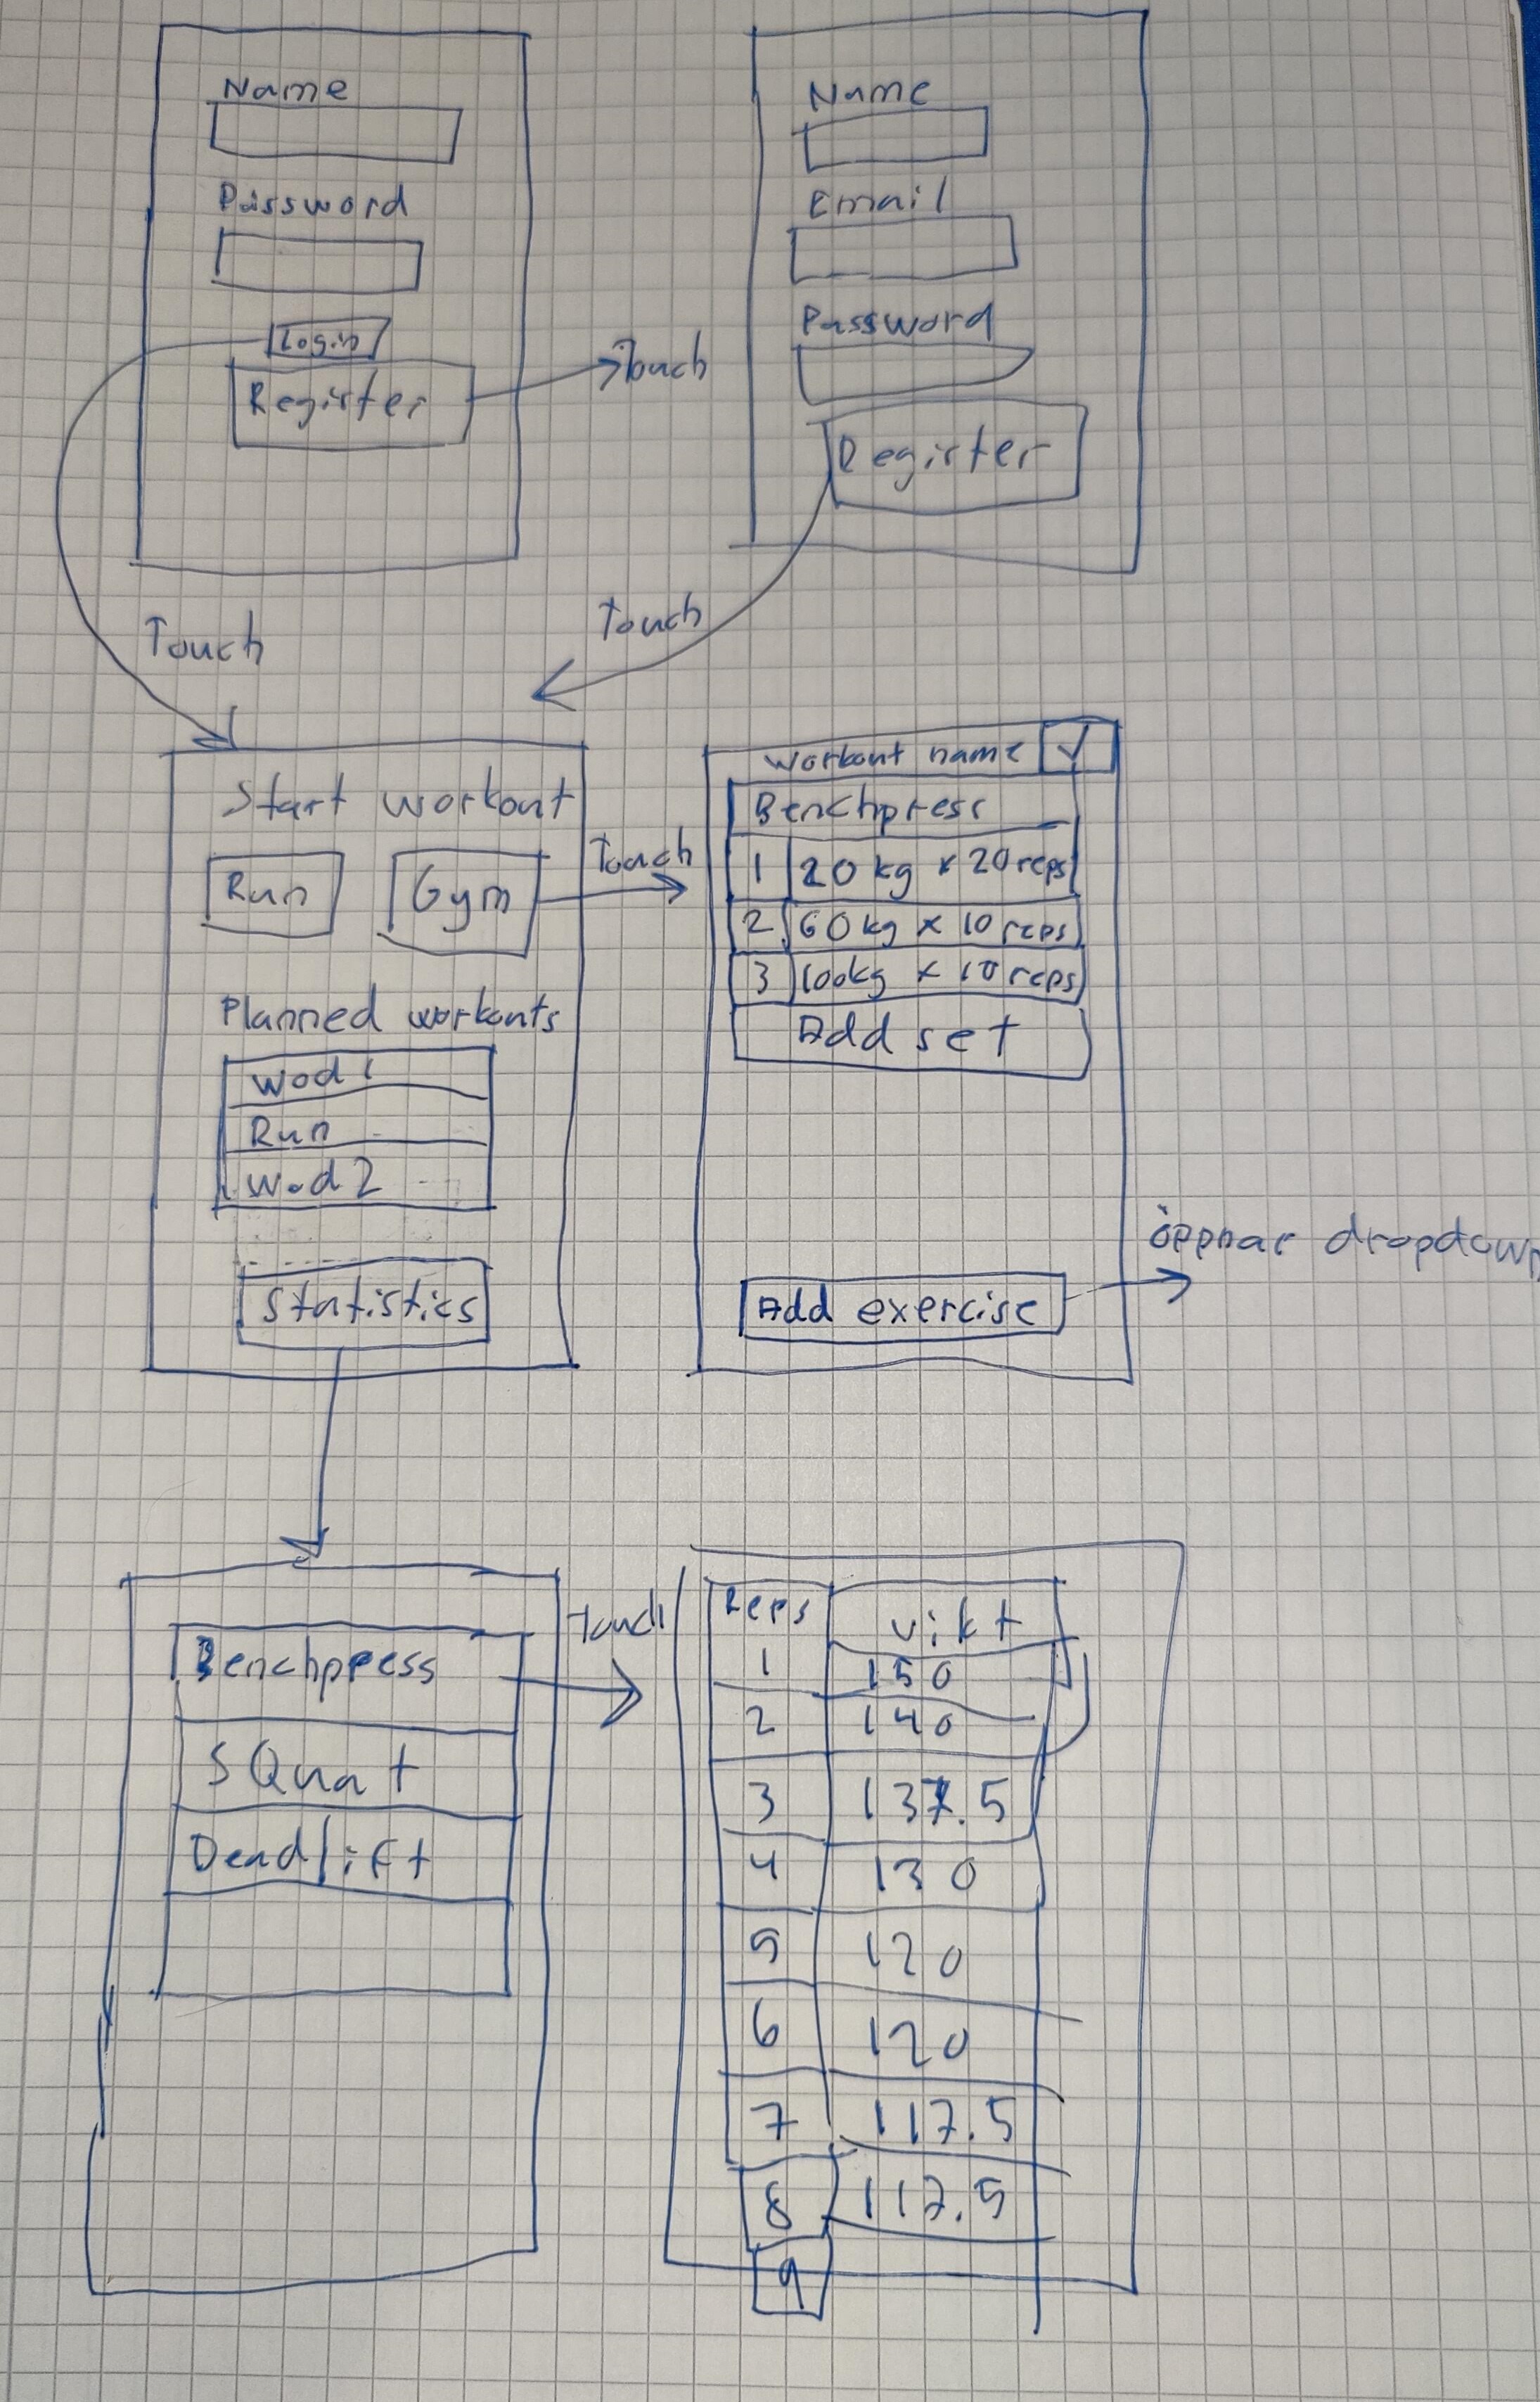 Name
Password
Login
Register
Touch
Name
Email
Password
Register
Touch
Touch
Start workout
Run
Gym
Touch
Planned workouts
Wod 1
Run
Wod 2
Statistics
Workout name ✓
Benchpress
1 20 kg x 20 reps
2 60 kg x 10 reps
3 100kg x 10 reps
Add set
Add exercise
öppnar dropdown
Benchpress
SQuat
Deadlift
Touch
Reps vikt
1 150
2 140
3 137.5
4 130
5 120
6 120
7 117.5
8 117.5
9